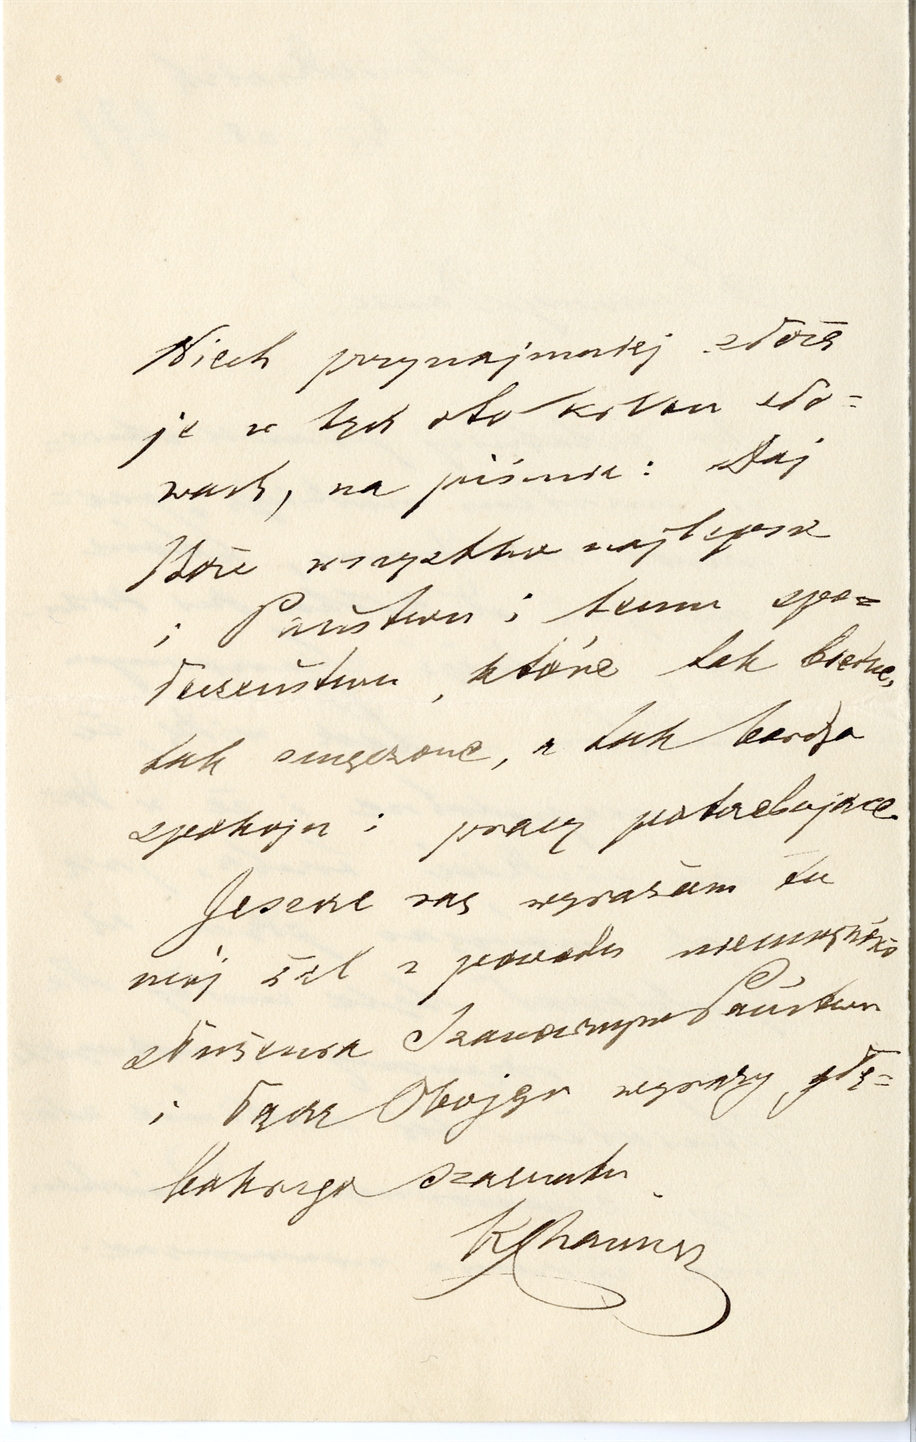 Niech przynajmniej złożę
je w tych oto kilku sło=
wach, na piśmie: Daj
Boże wszystko najlepsze
i Państwu i temu spo=
łeczeństwu, które tak biedne,
tak zmęczone, a tak bardzo
spokoju i pracy potrzebujące.
Jeszcze raz wyrażam tu
mój żal z powodu niemożności
złożenia Szanownym Państwu
i łączę Obojgu wyrazy głę=
bokiego szacunku